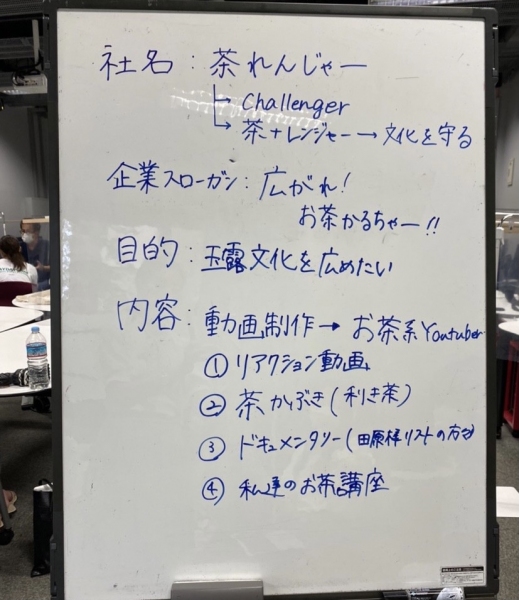 社名：茶れんじゃー
↳ Challenger
↳ 茶＋レンジャー→文化を守る
企業スローガン：広がれ！
お茶かるちゃー!!
目的：玉露文化を広めたい
内容：動画制作→お茶系Youtuber
① リアクション動画
② 茶かぶき(利き茶)
③ ドキュメンタリー(田原様リストの方々
④ 私達のお茶講座